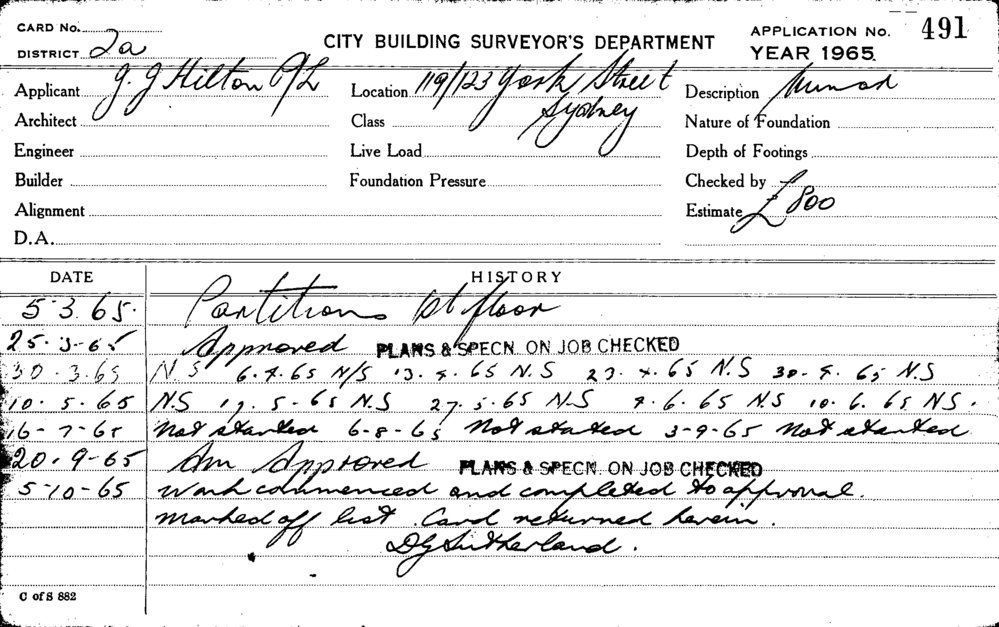 CARD No.
DISTRICT 2a
CITY BUILDING SURVEYOR'S DEPARTMENT
APPLICATION No. 491
YEAR 1965
Applicant J. J Hilton P/L
Location 119/123 York Street
Sydney
Description
Architect
Class
Nature of Foundation
Engineer
Live Load
Depth of Footings
Builder
Foundation Pressure
Checked by
Alignment
Estimate £800
D.A.
DATE HISTORY
5-3.65. Partitions 1st floor
25-3-65 Approved PLANS & SPECN. ON JOB CHECKED
30.3.65 N S 6.4.65 N/S 13.4.65 N.S 23.4.65 N.S 30.4.65 N.S
10.5.65 N.S 19.5-65 N.S 27.5.65 N.S 4.6.65 N.S 10.6.65 N.S.
16-7-65 Not started 6-8-65 Not started 3-9-65 Not started
20.9-65 Am Approved PLANS & SPECN. ON JOB CHECKED
5-10-65 Work commenced and completed to approval.
Marked off list. Card returned herein.
DG Sutherland.
C of S 882